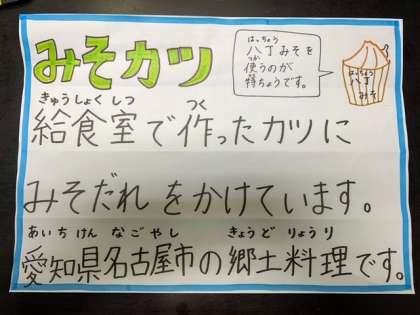 みそカツ
はっちょう
八丁みそを
つか
使うのが
とく
特ちょうです。
はっちょう
八丁
みそ
きゅうしょくしつ つく
給食室で作ったカツに
みそだれをかけています。
あいちけん なごやし きょうどりょうり
愛知県名古屋市の郷土料理です。